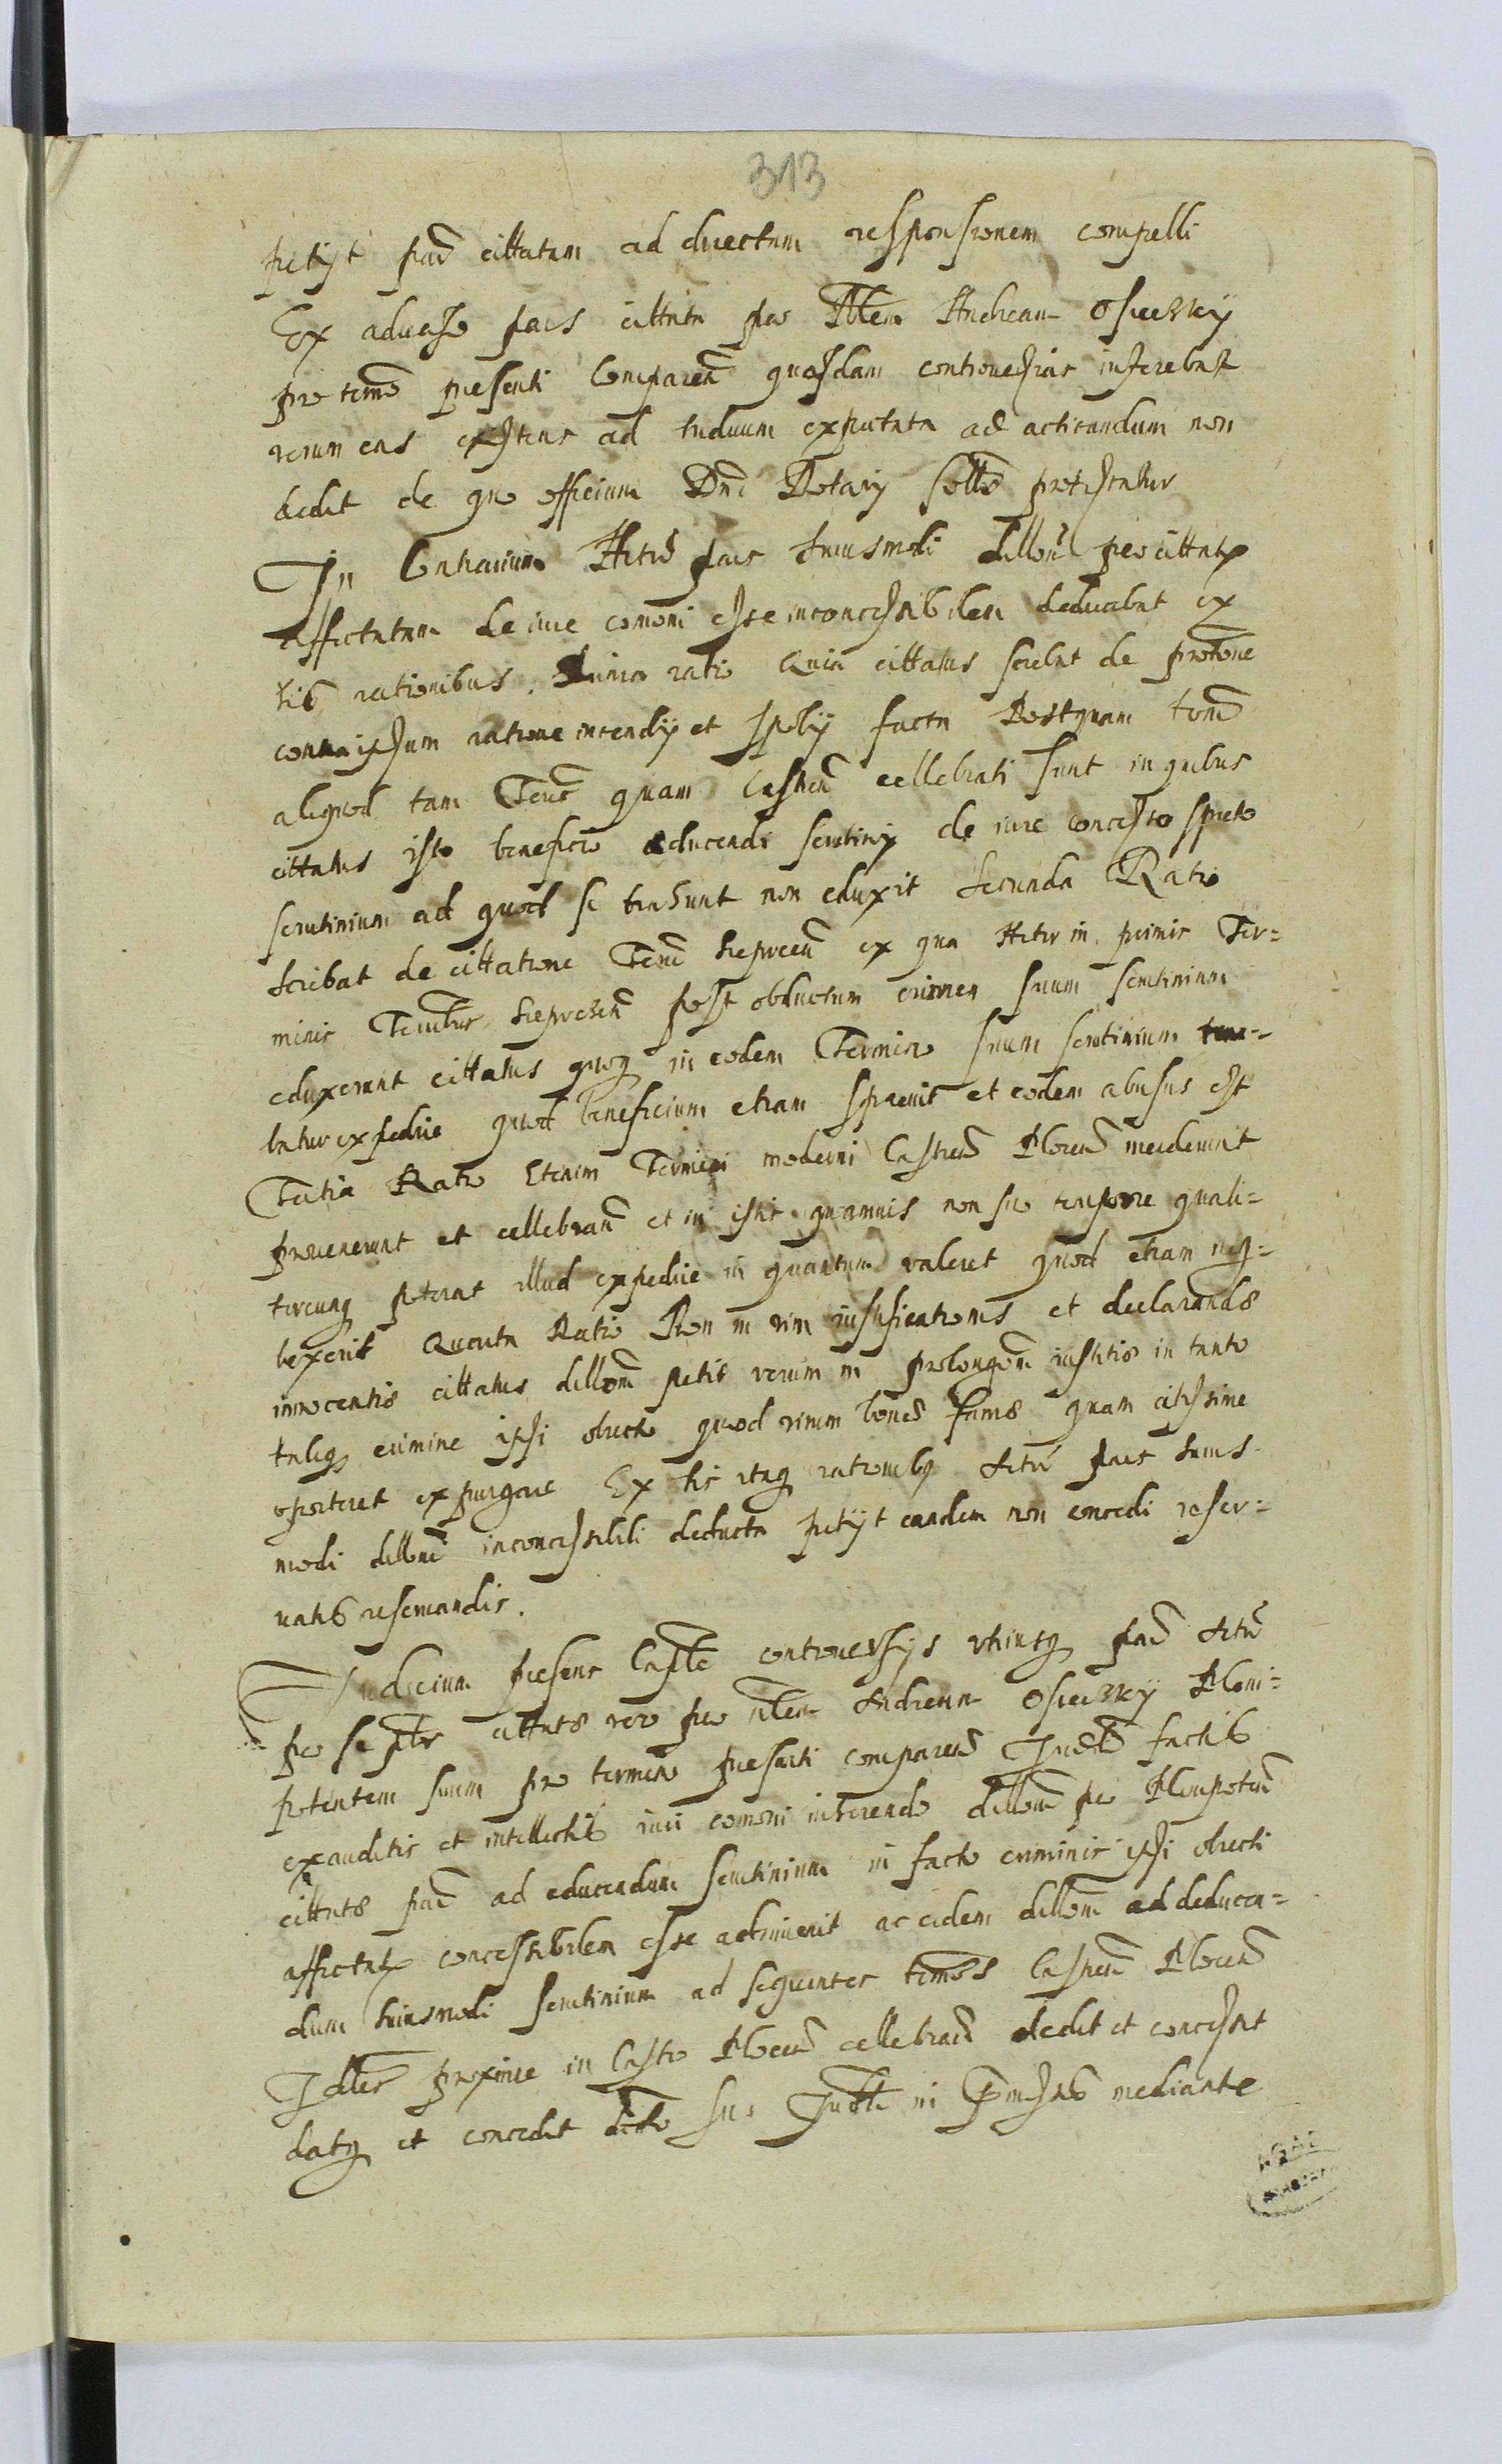 313
petijt parē cittatam ad directam responsionem compelli
Ex aduerso pars cittata per Nblem Andream Osiecrky
pro termo presenti comparen quasdam controuersias inferebat
rerum eas existens ad triduum exputata ad actitandum non
dedit de quo officium Dni Notarij sollē protestatur
In Contrarium Actrō pars huiusmodi dillonē per cittatx
affectatam de iure comoni esse inconcessibilem deducebat ex
his rationibus. Prima ratio Quia cittatus sciebat de protone
contra ipsum ratione incendij et spolij facta Postquam termi
aliquod tam Terrē quam Castren cellebrati sunt in quibus
cittatus isto beneficio educendi scrutinij de iure concesso spreto
scrutinium ad quod se trahunt non eduxit Secunda Ratio
Sciebat de cittatione Terrē Sieprcen ex qua Actor in primis Ter=
minis Terrestribus Sieprcen post obductum crimen suum scrutinium
eduxerunt cittatus quoq in eodem Termino suum scrutinium tene=
batur expedire quod beneficium etiam spreuit et eodem abusus est
Tertia Ratio Etenim Termini moderni Castren Plocen inciderunt
prouenerunt et cellebran et in istis quamuis non suo tempore quali=
tercunq poterat illud expedire in quantum valeret quod etiam neg=
lexerit Quarta Ratio Non in vim iustificationis et declarandæ
innocentiæ cittatus dillonē petit verum in prolongonē iustitiæ in tanto
taliq crimine ipsi obiecto quod virum bonæ famæ quam citissime
oporteret expurgare Ex his itaq rationibq Actrō pars huius
modi dillonē inconcessibili deducta petijt eandem non concedi reser=
uatis reseruandis.
Iudicium presens Castrē controuersijs vtriusq parē Actrō
per se ipsos cittatæ vero per nblem Andream Osiecrky Pleni=
potentem suum pro termino presenti comparen Iudicō factis
exauditis et intellectis iuri comoni inherendo dillonē per Plenipoten
cittatæ parē ad educendum scrutinium in facto criminis ipsi obiecti
affectatx concessibilem esse adinuenit ac eidem dillonē ad deducen=
dum huiusmodi scrutinium ad sequentes termos Castren Plocen
Ibidem proxime in Castro Plocen cellebran dedit et concessit
datq et concedit decto suo Iudli in premissis mediante